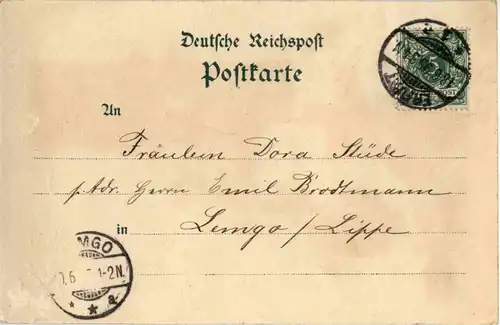 Deutsche Reichspost
Postkarte
An
Fräulein Dora Stüde
p. Adr. Herrn Emil Brodtmann
in Lemgo / Lippe
1-2N.
a